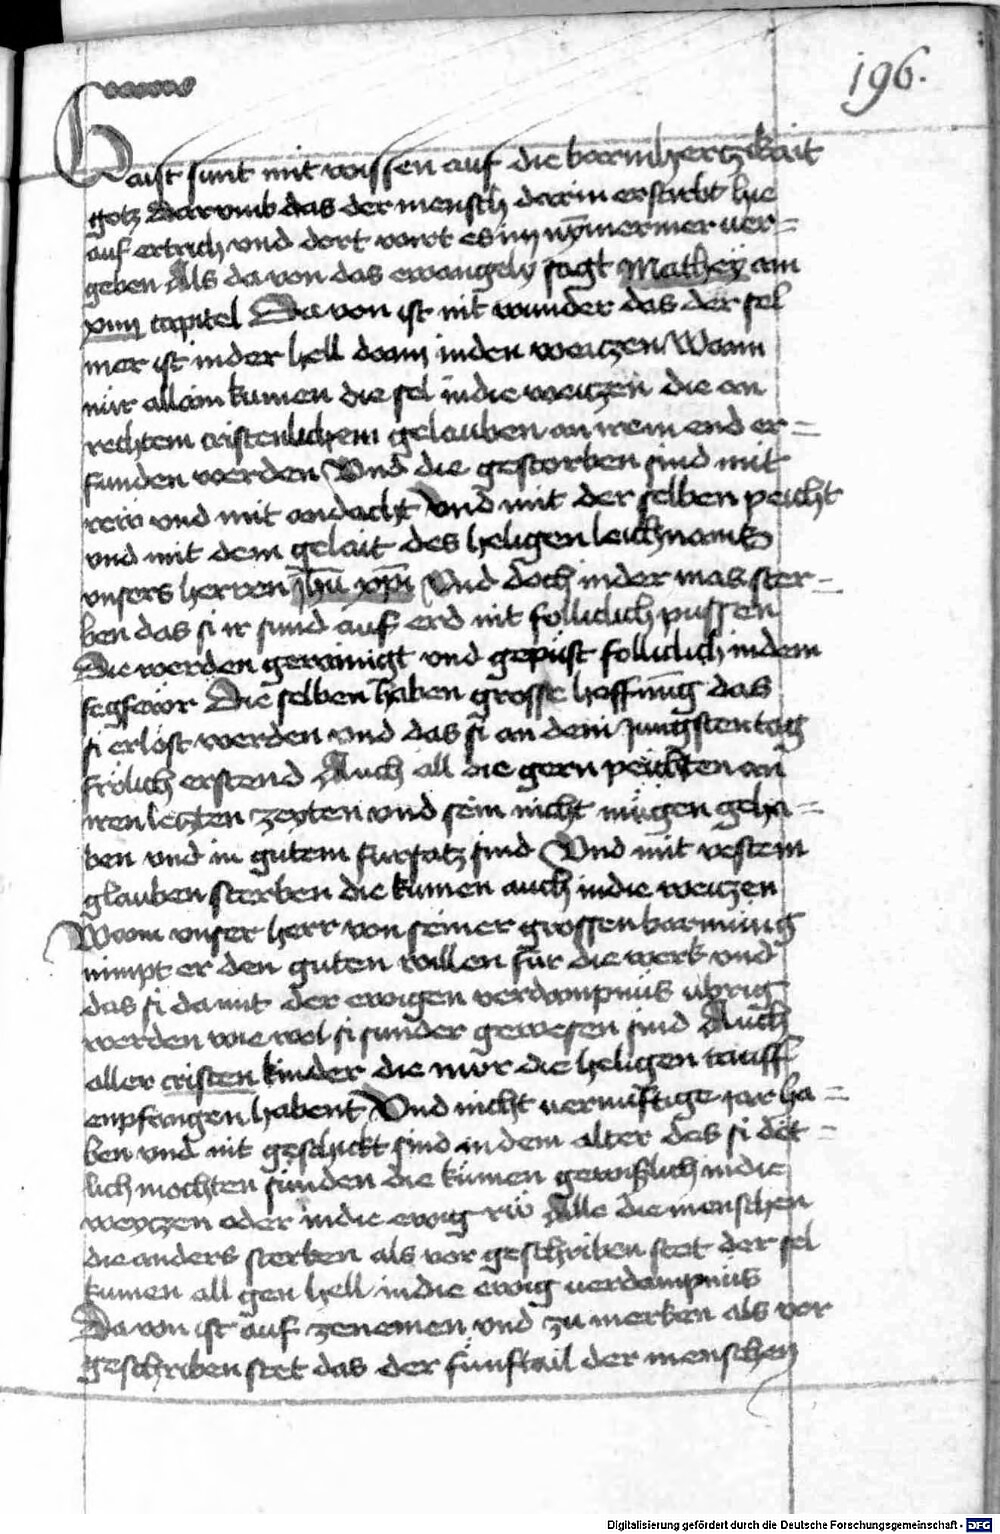 196.
Gaist sunt mit wissen auf die barmhertzikait
gotz Darumb das der mensch darin erstirbt hie
auf ertrich vnd dort wirt es im nymermer ver=
geben Als da von das ewangely sagt Mathey am
xiiij capitel Da von ist nit wunder das der sel
mer ist in der hell dann in den weiczen Wann
nur allain kumen die sel in die weiczen die an
rechtem cristenlichem gelauben an irem end er=
funden werden Vnd die gestorben sind mit
rew vnd mit andacht vnd mit der selben peicht
vnd mit dem gelait des heligen leichnams
vnsers herren jhu xpi Vnd doch in der mas ster=
ben das si ir sund auf erd nit folliclich pussen
Die werden gerainigt vnd gepüst folliclich in dem
fegfewr Die selben haben grosse hoffnüg das
si erlöst werden vnd das si an dem jungsten tag
frölich erstend Auch all die gern peichten an
iren letzten zeyten vnd sein nicht mügen geha=
ben vnd in gutem fursatz sind Vnd mit vestem
glauben sterben die kumen auch in die weiczen
Wann vnser herr von seiner grossen barmüng
nimpt er den guten willen für die werk vnd
das si da mit der ewigen verdampnüs übrig
werden wie wol si sunder gewesen sind Auch
aller cristen kinder die nur die heligen tauff
enpfangen habent Vnd nicht vernüftige jar ha=
ben vnd nit geschickt sind in dem alter das si döt=
lich mochten sünden die kümen gewislich in die
weyczen oder in die ewig rw Alle die menschen
die anders sterben als vor geschriben stet der sel
kumen all gen hell in die ewig verdampnüs
Da von ist auf zenemen vnd zu merken als vor
geschriben stet das der fünftail der menschen
Digitalisierung gefördert durch die Deutsche Forschungsgemeinschaft - DFG